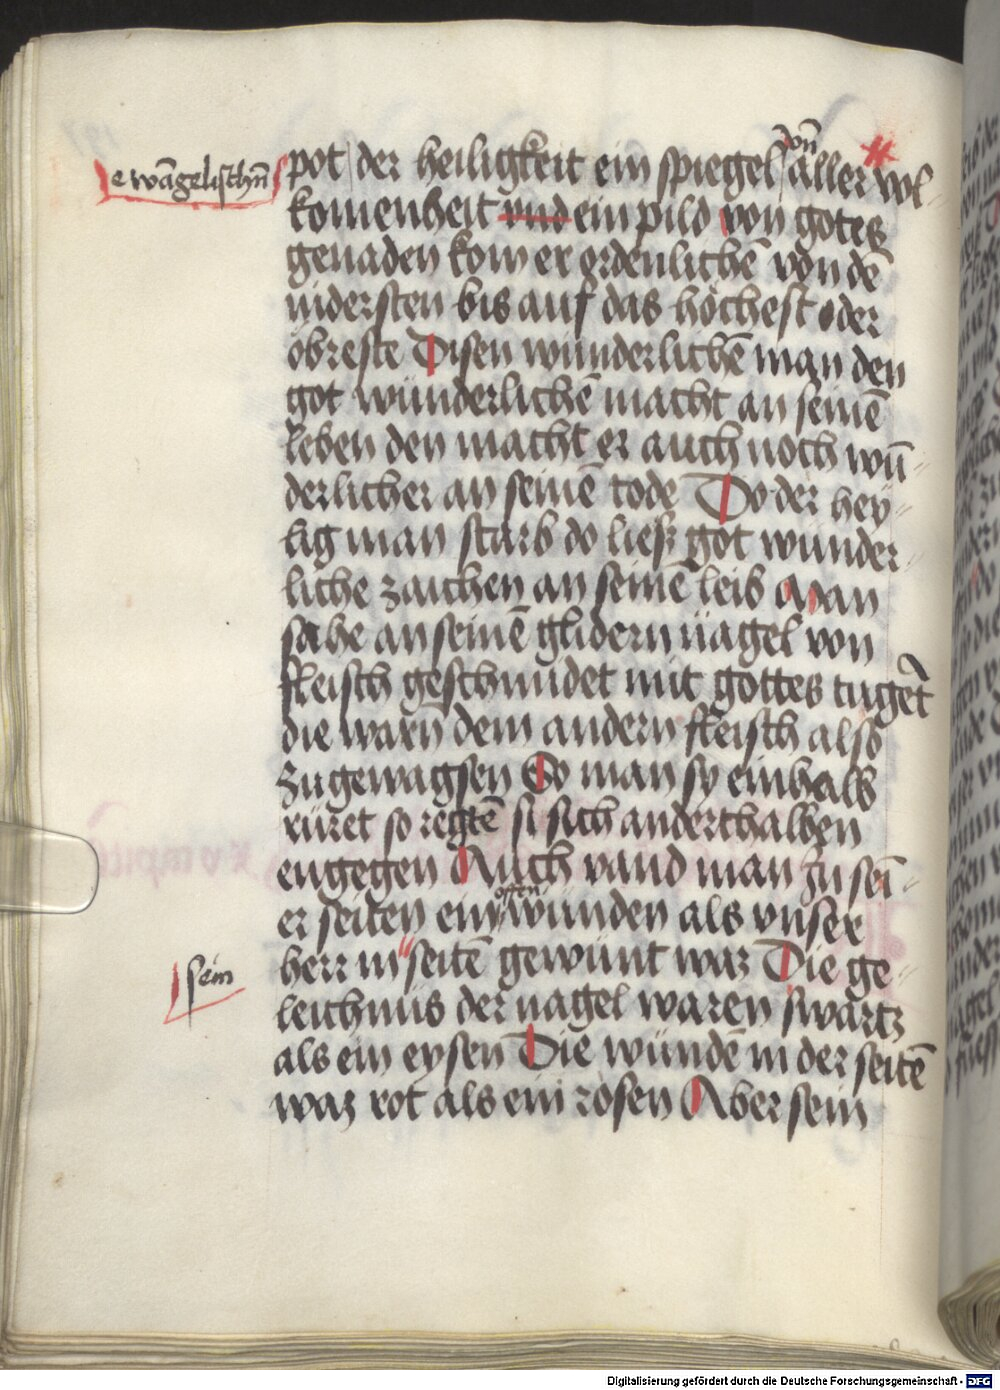 vō̄n
ewāgelischn̄
pot der heiligkeit ein spiegel aller vol-
komenheit vnd ein pild von gotes
genaden kom er ordenlichē von dē
nidersten bis auf das höchest oder
öbreste Disen wunderlichē man den
got wunderlichē macht an seinē
leben den macht er auch noch wū-
derlicher an seinē tode Do der hey-
lig man starb do liesz got wunder-
liche zaichen an seinē leib Man
sahe an seinē glidern nagel von
fleisch geschmidet mit gottes tugēt
die warn̄ dem andern fleisch also
zugewagsen So man sy einhalb
rüret so regtē si sich anderthalben
engegen Auch vand man zu sei-
offen
er seiten ein wunden als vnser
herr in seitē gewunt waz Die ge-
sein
leichnüs der nagel waren swartz
als ein eysen Die wundē in der seitē
waz rot als ein rosen Aber sein
Digitalisierung gefördert durch die Deutsche Forschungsgemeinschaft - DFG